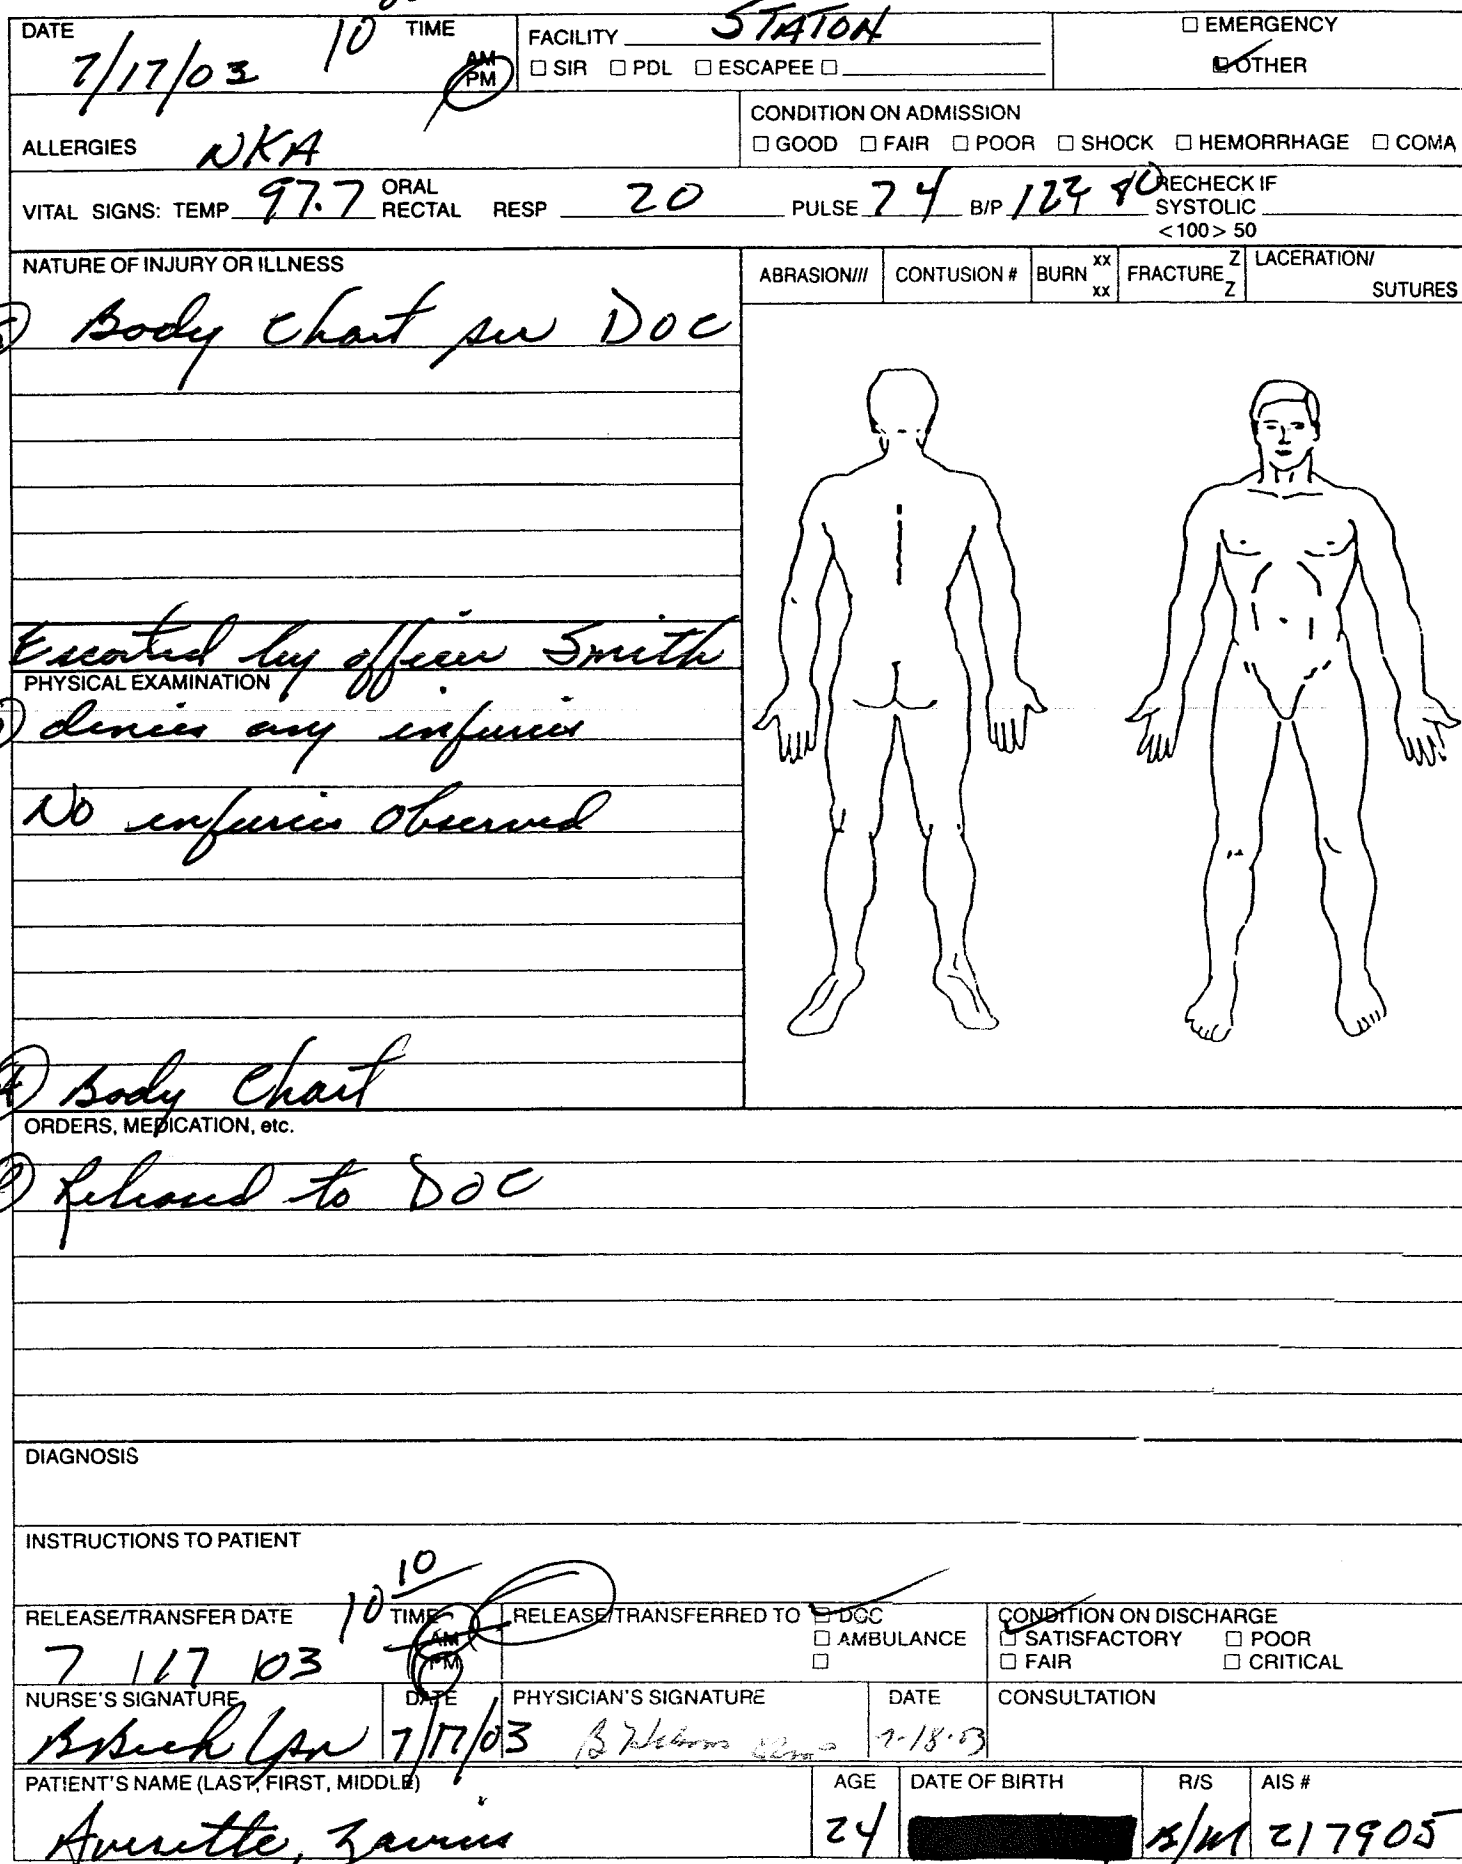 DATE 7/17/03 10 TIME AM PM FACILITY STATON □ EMERGENCY
□ SIR □ PDL □ ESCAPEE □ □ OTHER
ALLERGIES NKA
CONDITION ON ADMISSION
□ GOOD □ FAIR □ POOR □ SHOCK □ HEMORRHAGE □ COMA
VITAL SIGNS: TEMP 97.7 ORAL RECTAL RESP 20 PULSE 74 B/P RECHECK IF SYSTOLIC <100> 50
NATURE OF INJURY OR ILLNESS
ABRASION/// CONTUSION # BURN xx xx FRACTURE Z Z LACERATION/ SUTURES
Body Chart per DOC
Escorted by officer Smith
PHYSICAL EXAMINATION
denies any injuries
No injuries Observed
Body Chart
ORDERS, MEDICATION, etc.
Released to DOC
DIAGNOSIS
INSTRUCTIONS TO PATIENT
RELEASE/TRANSFER DATE 7 / 17 / 03 10 10 TIME AM PM
RELEASE/TRANSFERRED TO □ DOC
□ AMBULANCE
□
CONDITION ON DISCHARGE
□ SATISFACTORY □ POOR
□ FAIR □ CRITICAL
NURSE'S SIGNATURE DATE PHYSICIAN'S SIGNATURE DATE CONSULTATION
7/17/03 7-18-03
PATIENT'S NAME (LAST, FIRST, MIDDLE) AGE DATE OF BIRTH R/S AIS #
Averette, 24 B/M 217905